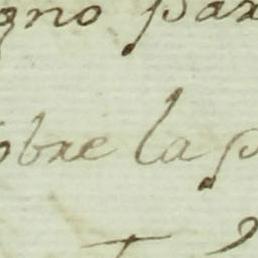 gno par
obre la p